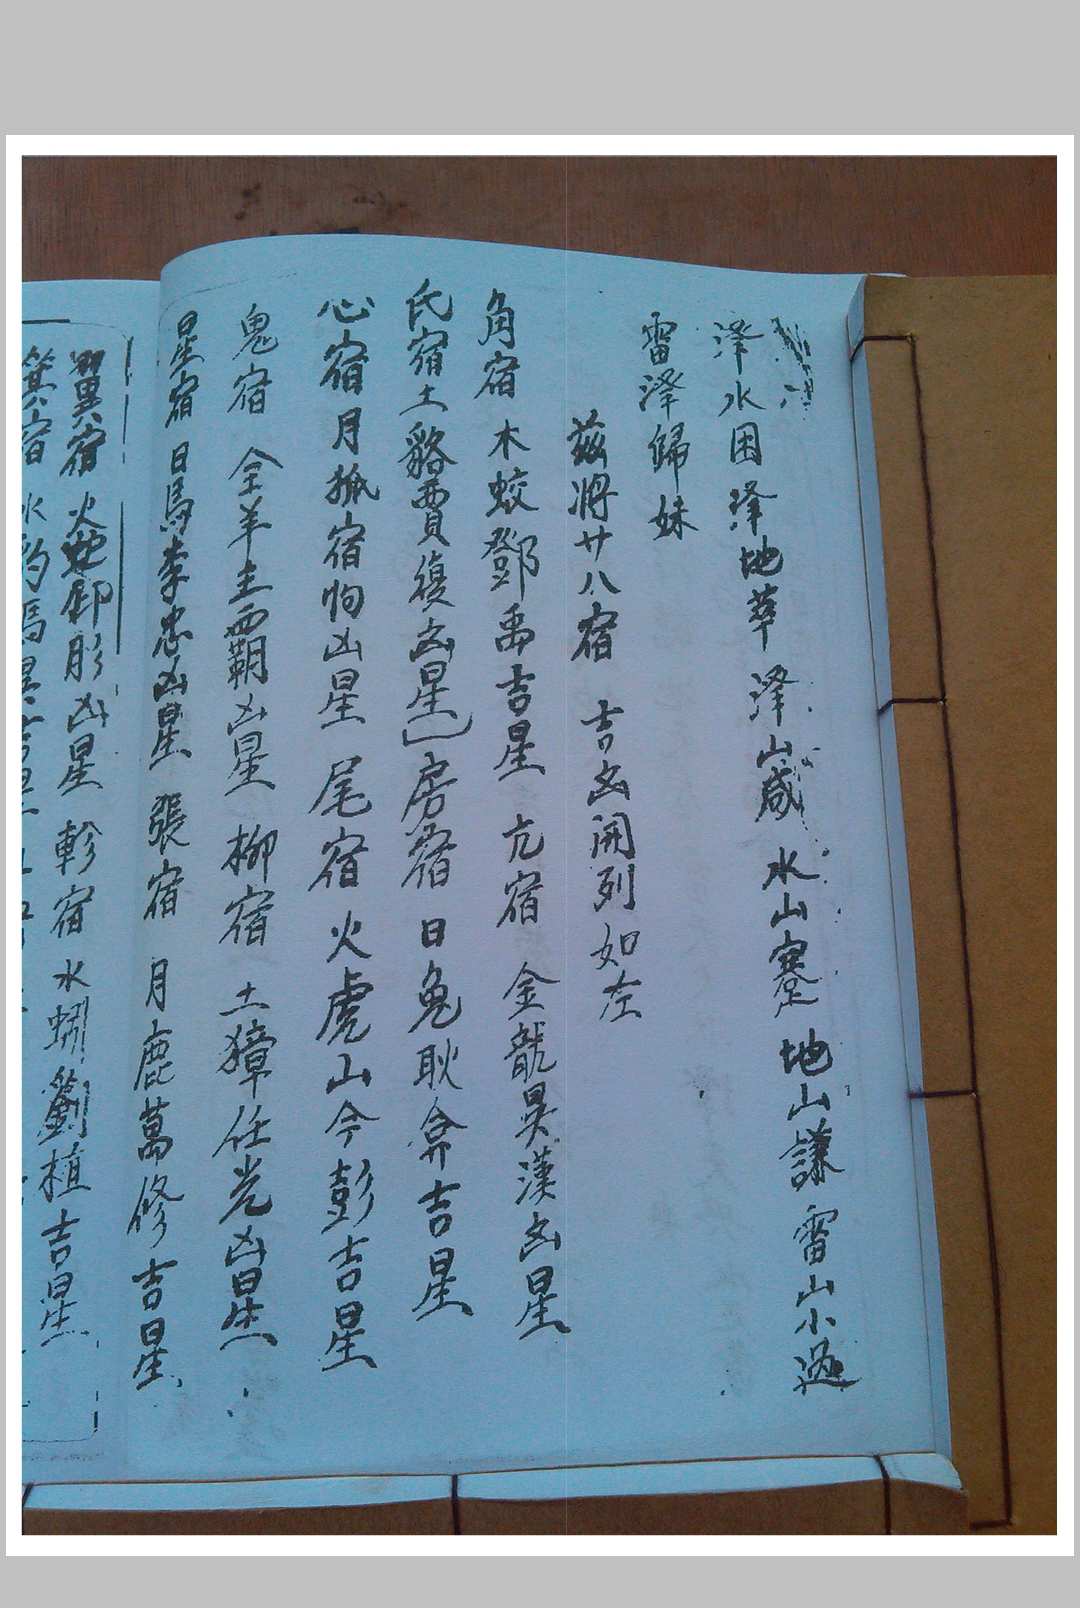 澤水困 澤地萃 澤山咸 水山蹇 地山謙 雷山小過
雷澤歸妹
茲將廿八宿 吉凶開列如左
角宿 木蛟鄧禹吉星 亢宿 金龍吳漢凶星
氐宿土貉賈復凶星 房宿 日兔耿弇吉星
心宿月狐宿恂凶星 尾宿 火虎山今彭吉星
鬼宿 金羊主霸凶星 柳宿 土獐任光凶星
星宿 日馬李忠凶星 張宿 月鹿萬修吉星
翼宿 火蛇邳彤凶星 軫宿 水蚓劉植吉星
箕宿 水豹馮異吉星